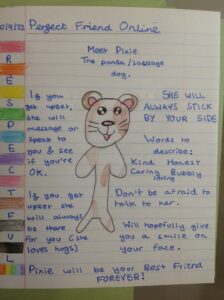 10/9/23 Perfect Friend Online
Meet Pixie
The panda/sausage
dog.
RESPECTFUL
If you
get upset,
she will
message or
speak to
you & see
if you're
OK.
SHE WILL
ALWAYS STICK
BY YOUR SIDE
Words to
describe:
Kind Honest
Caring Bubbly
loving
If you get
upset she
will always
be there
for you (she
loves hugs)
Don't be afraid to
talk to her.
Will hopefully give
you a smile on
your face.
Pixie will be your Best Friend
FOREVER!